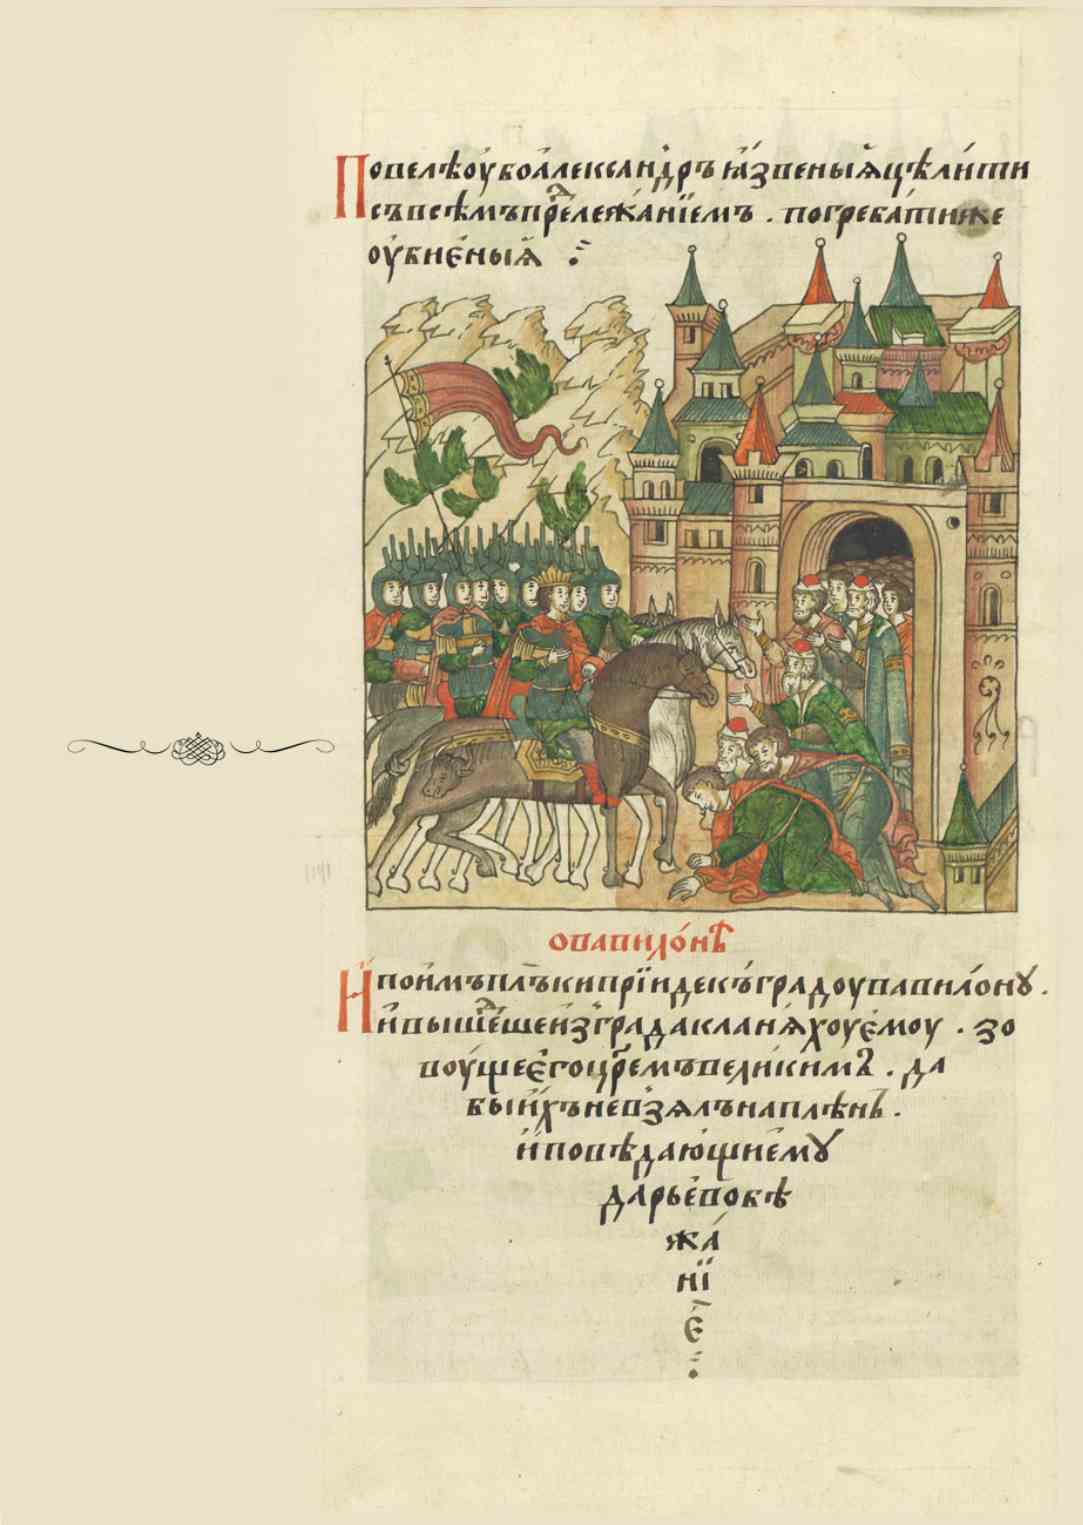 Повелѣ оубо алеѯандръ ꙗзвеныѧ цѣлити
съ всѣмъ прⷣлежанїемъ . погребати же
оубиеныѧ :
о вавилонѣ
И поимъ плъки прїиде къ градоу вавилону .
и вышеⷣше из града кланѧхоу емоу . зо
воуще его црⷭемъ великимъ . да
бы ихъ не взялъ на плѣнъ .
и поведающи ему
дарье во бѣ
жа
нї
е :